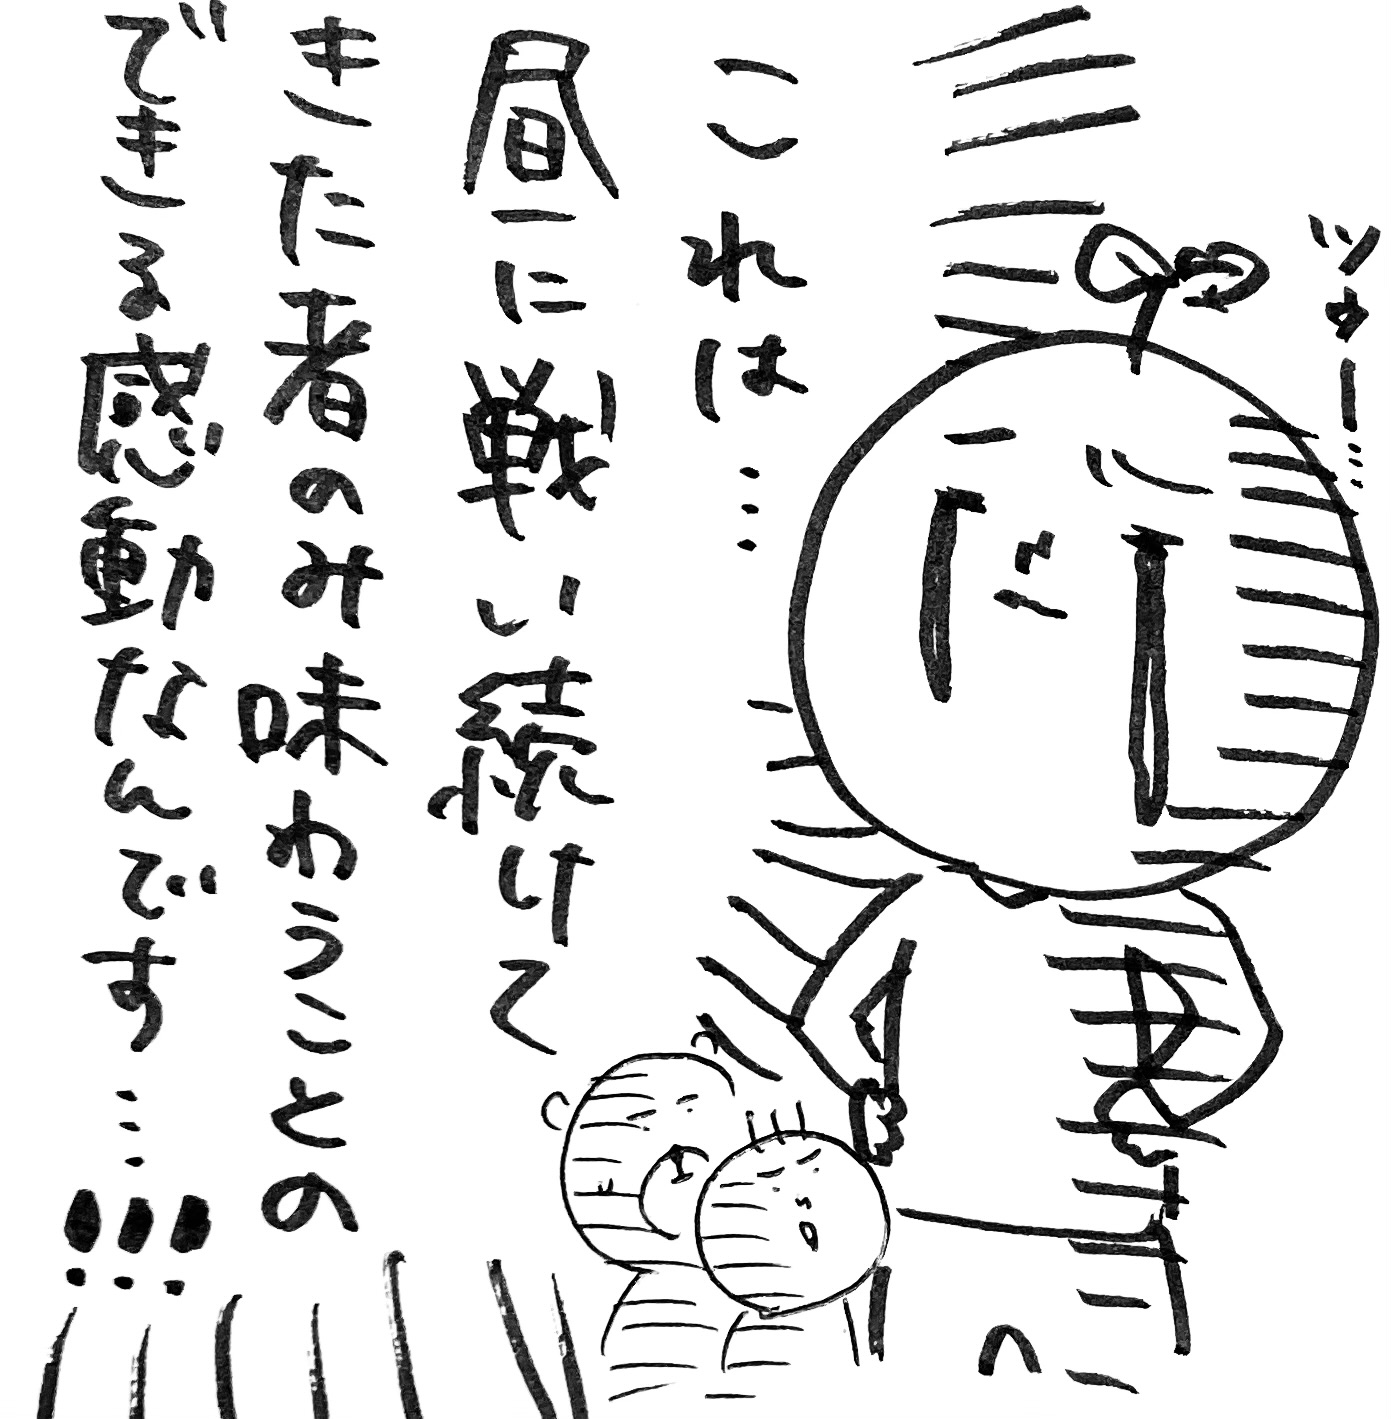 ツゥー…
これは…
昼一に戦い続けて
きた者のみ味わうことの
できる感動なんです…!!!